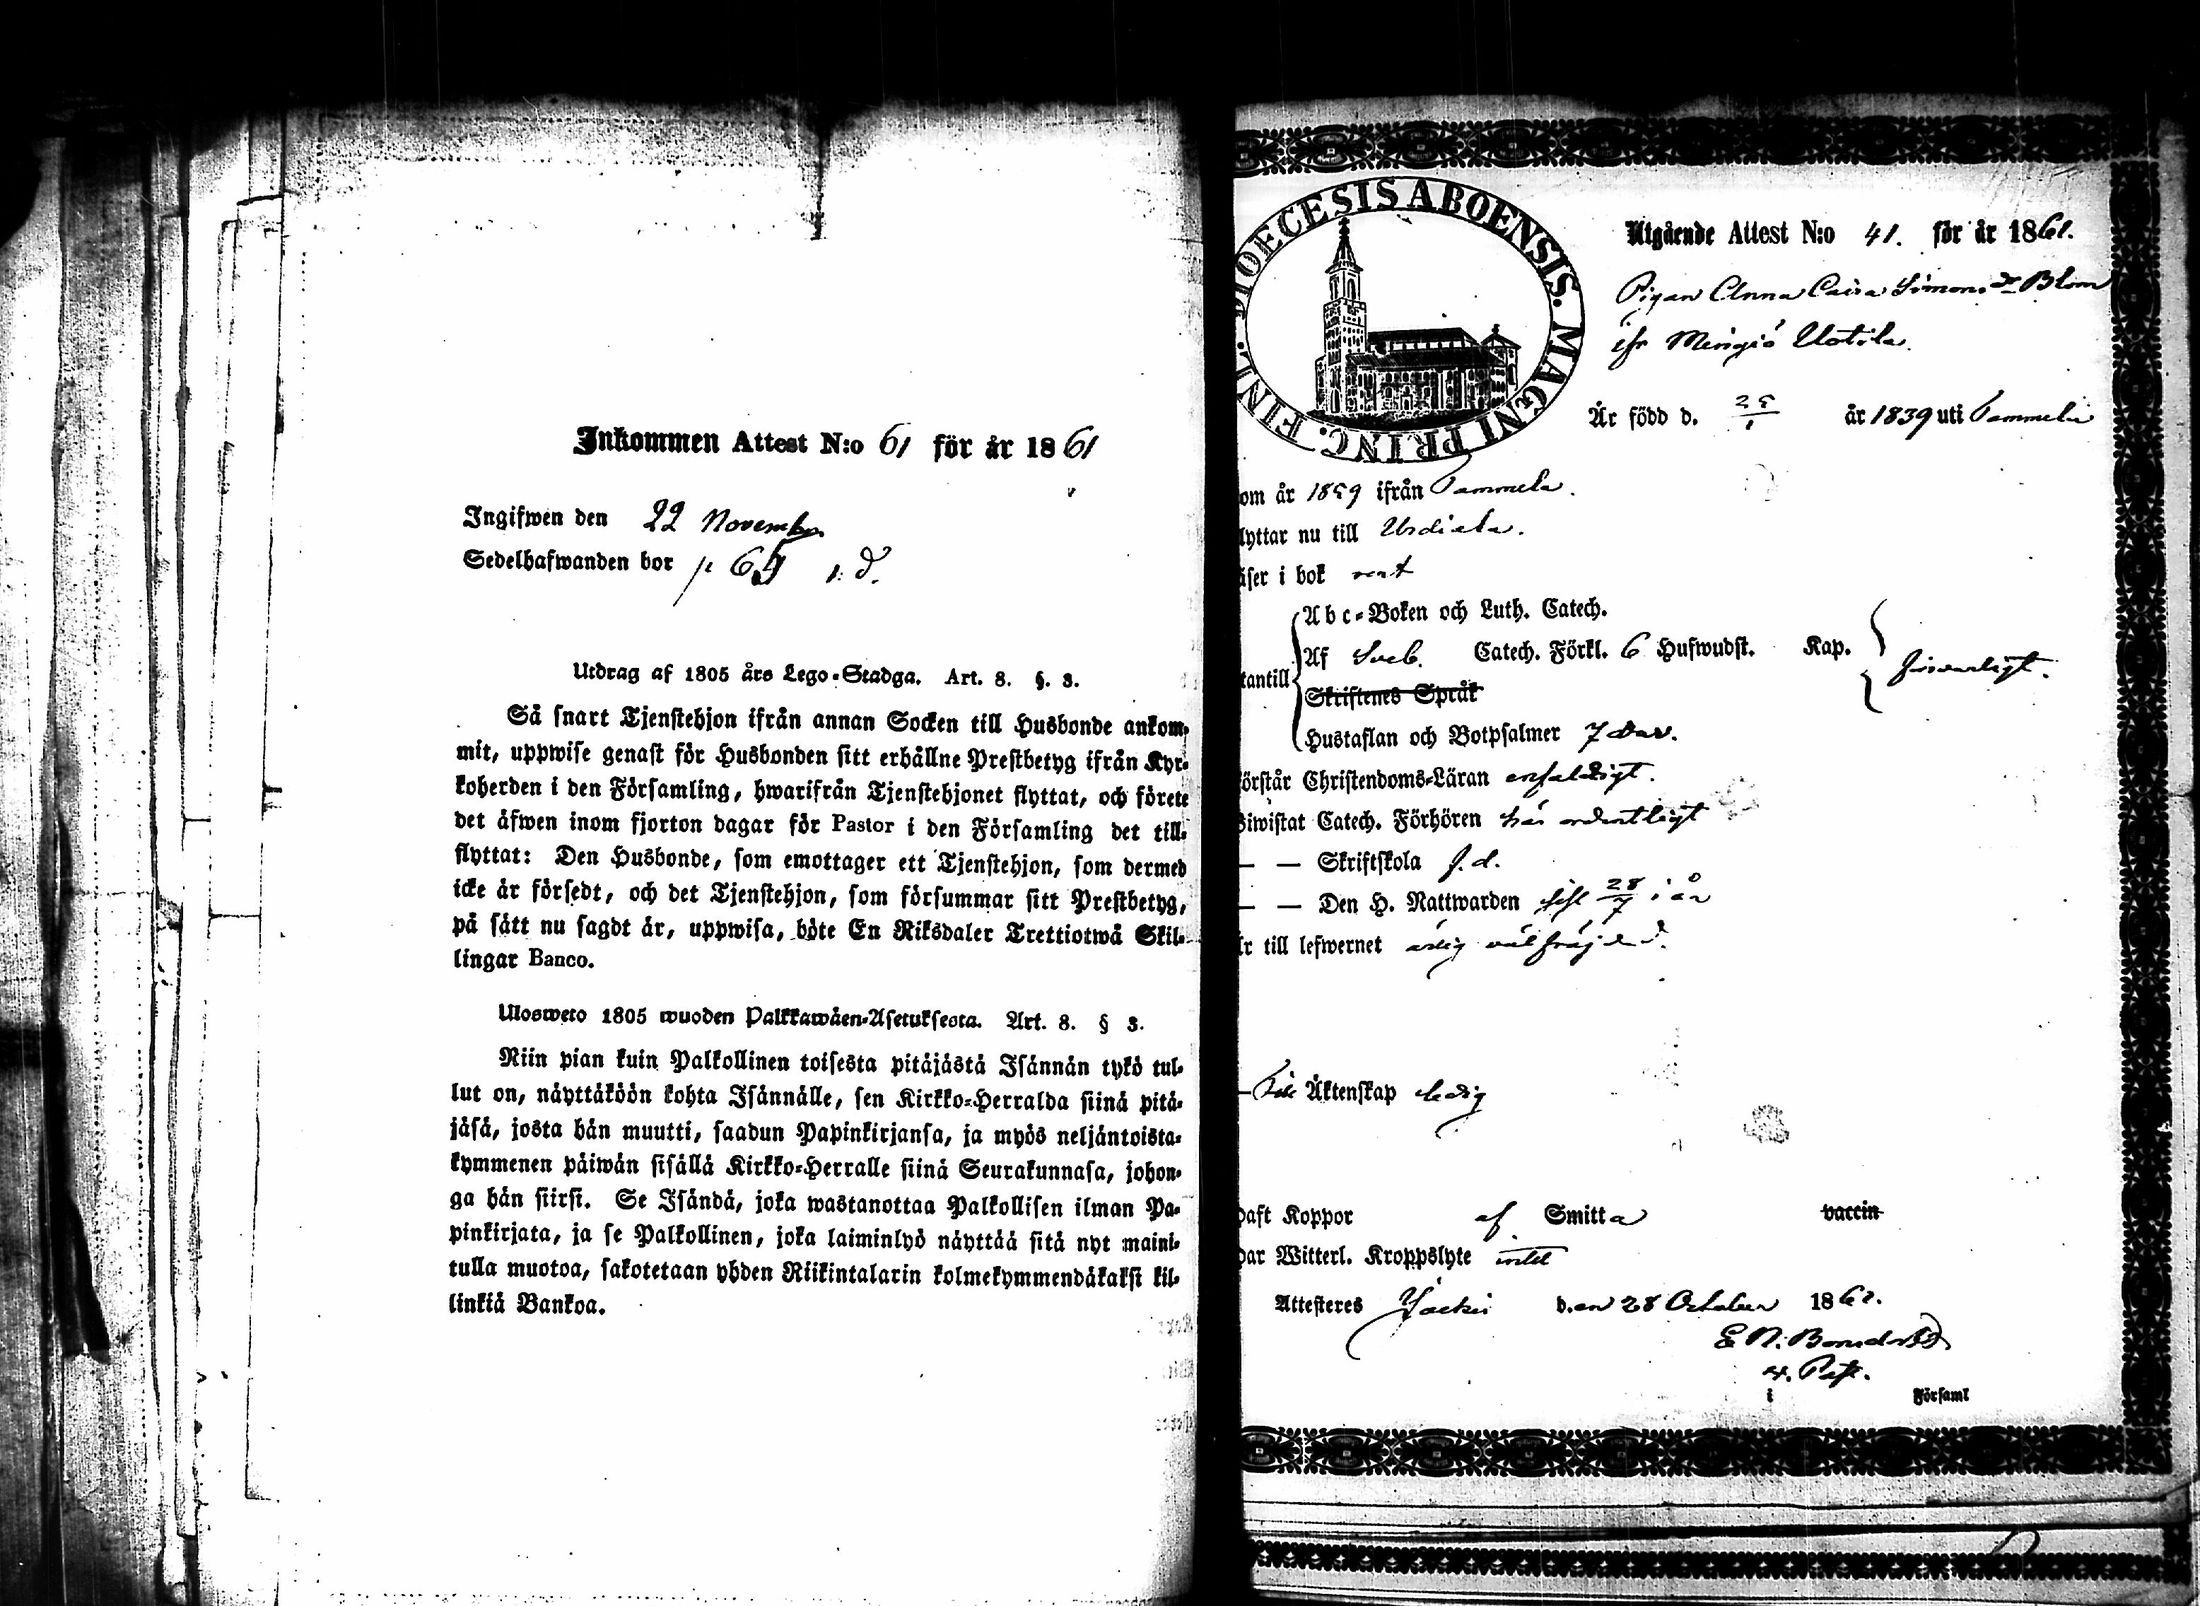 Inkommen Attest N:o 61 för år 1861
Ingifwen den 22 November
Sedelhafwanden bor p 69 i. d.
Utdrag af 1805 års Lego-Stadga. Art. 8. §. 3.
Så snart Tjenstehjon ifrån annan Socken till Husbonde ankom-
mit, uppwise genast för Husbonden sitt erhållne Prestbetyg ifrån Kyr-
koherden i den Församling, hwarifrån Tjenstehjonet flyttat, och förete
det äfwen inom fjorton dagar för Pastor i den Församling det till-
flyttat: Den Husbonde, som emottager ett Tjenstehjon, som dermed
icke är försedt, och det Tjenstehjon, som försummar sitt Prestbetyg,
på sätt nu sagdt är, uppwisa, böte En Riksdaler Trettiotwå Skil-
lingar Banco.
Ulosweto 1805 wuoden Palkkawäen-Asetuksesta. Art. 8. § 3.
Niin pian kuin Palkollinen toisesta pitäjästä Isännän tykö tul-
lut on, näyttäköön kohta Isännälle, sen Kirkko-Herralda siinä pitä-
jäsä, josta hän muutti, saadun Papinkirjansa, ja myös neljäntoista-
kymmenen päiwän sisällä Kirkko-Herralle siinä Seurakunnasa, johon-
ga hän siirsi. Se Isändä, joka wastanottaa Palkollisen ilman Pa-
pinkirjata, ja se Palkollinen, joka laiminlyö näyttää sitä nyt maini-
tulla muotoa, sakotetaan yhden Riikintalarin kolmekymmendäkaksi kil-
linkiä Bankoa.
FINL. DIOECESIS ABOENSIS. MAGNI PRINC.
Utgående Attest N:o 41. för år 1861.
Pigan Anna Caisa Simonsdr Blom
ifr Uotila.
Är född d. 25/1 år 1839 uti Tammela
om år 1859 ifrån Tammela.
lyttar nu till Urdiala.
äser i bok rent
Abc-Boken och Luth. Catech.
Af Sveb. Catech. Förkl. 6 Hufwudst. Kap. försvarligt.
tantill
Skriftenes Språk
Hustaflan och Botpsalmer 7 Dav.
örstår Christendoms-Läran enfaldigt.
Biwistat Catech. Förhören här ordentligt
— — Skriftskola J. d.
— — Den H. Nattwarden sist 28/7 i år
Är till lefwernet ärlig välfräjdad.
— Till Äktenskap ledig
haft Koppor af Smitta vaccin
har Witterl. Kroppslyte intet
Attesteres Jockis den 28 October 1861.
i Församl